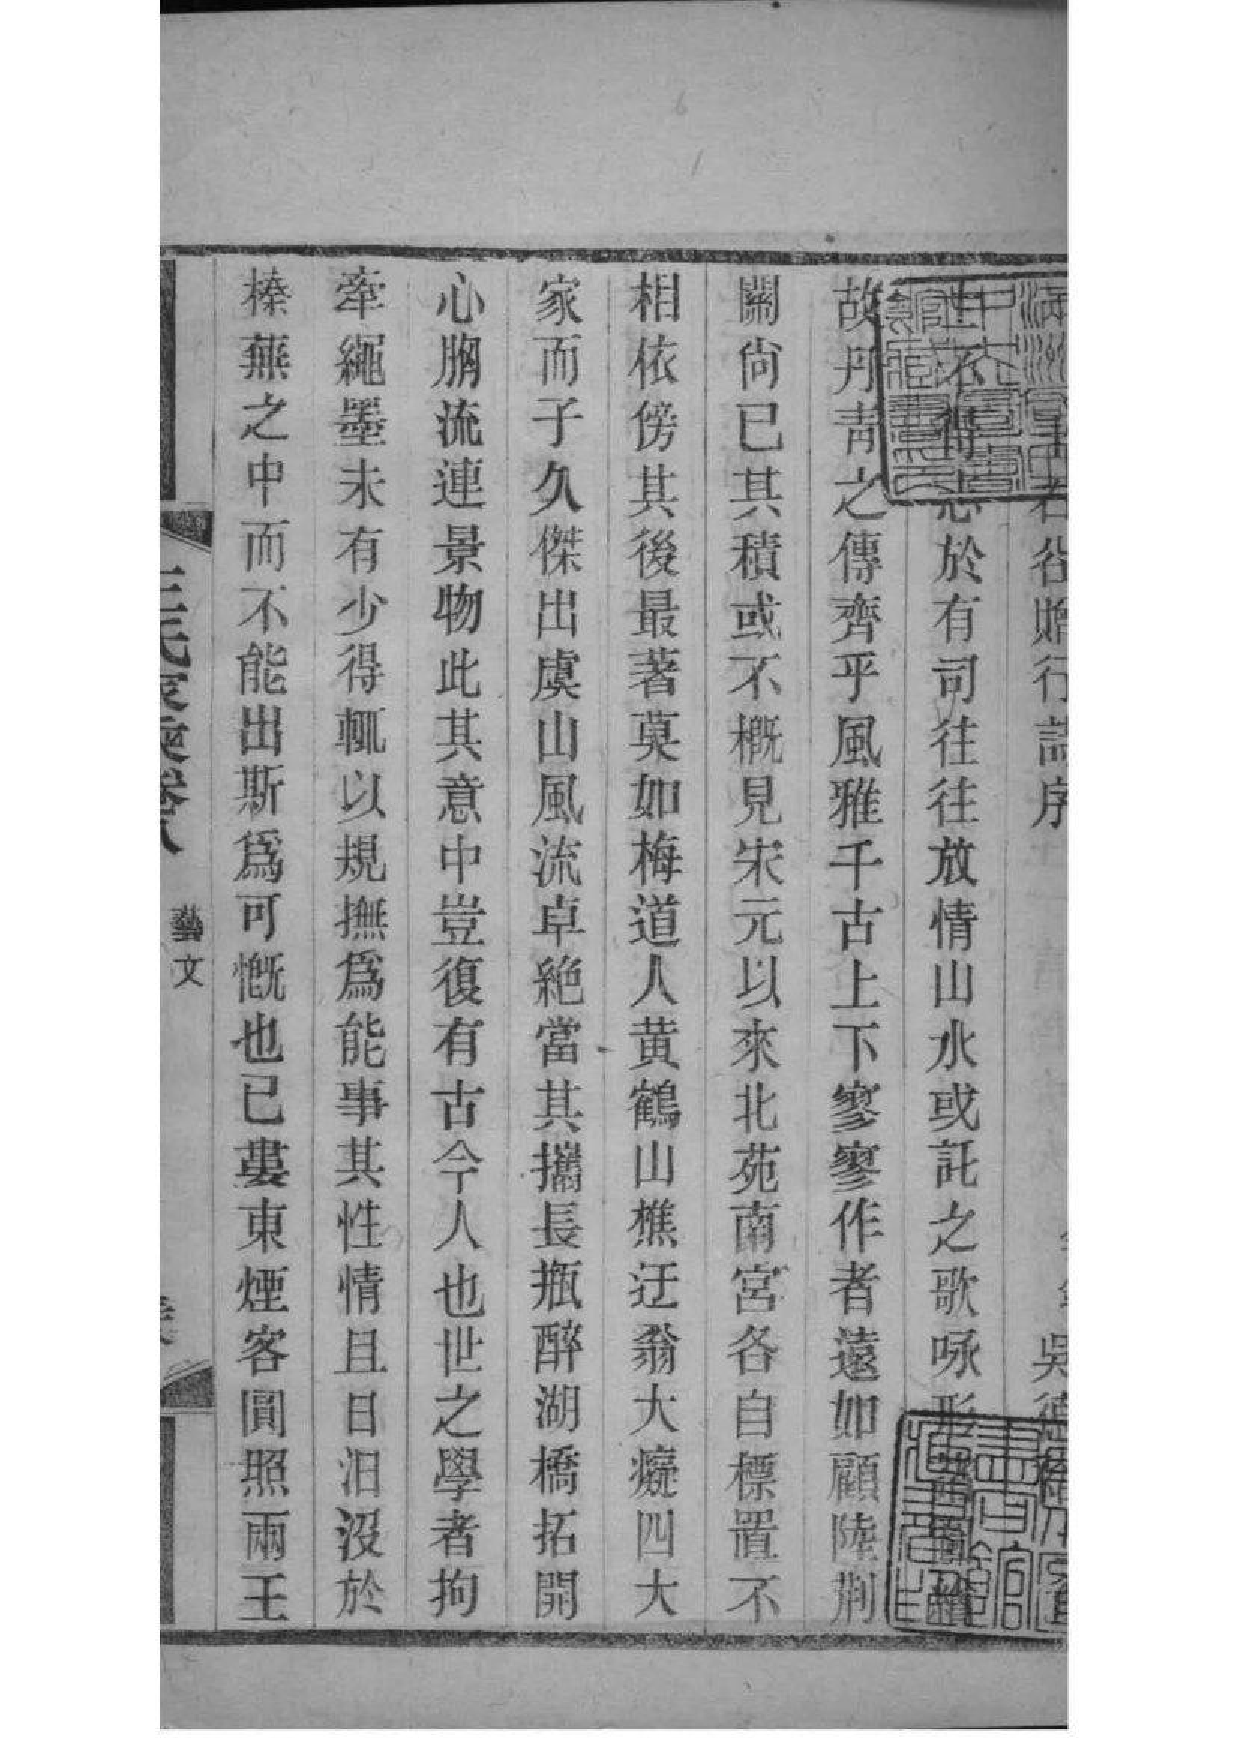 石谷贈行詩序 吳
士不得志於有司往往放情山水或託之歌咏形諸圖繪
故丹靑之傳齊乎風雅千古上下寥寥作者遠如顧陸荆
關尙已其積或不槪見宋元以來北苑南宮各自標置不
相依傍其後最著莫如梅道人黃鶴山樵迂翁大癡四大
家而子久傑出虞山風流卓絶當其攜長瓶醉湖橋拓開
心胸流連景物此其意中豈復有古今人也世之學者拘
牽繩墨未有少得輒以規撫爲能事其性情且日汨沒於
榛蕪之中而不能出斯爲可慨也已婁東煙客圓照兩王
王氏家乘卷八 藝文